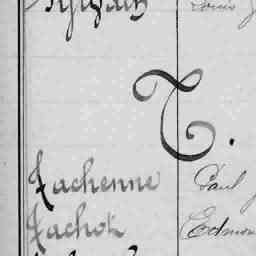 Louis
T.
Tachenne Paul
Tachot Edmon